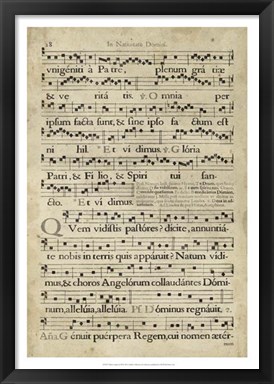 28 In Nativitate Domini.
unigéniti à Patre, plenum grá tiæ
& ve ritá tis. ℣. Omnia per
ipsum facta sunt, & sine ipso fa ctum est
ni hil. * Et vi dimus. ℣. Glória
Patri, & Fi lio, & Spiri tui san-
cto. * Et vi dimus.
Quem vidistis pastóres? dicite, annuntiá-
te nobis in terris quis appáruit? Natum vidi-
mus, & choros Angelórum collaudántes Dómi-
num, allelúia, allelúia. Ps. Dóminus regnávit. 2.
Aña. Génuit puérpera Regem, cui nomen ætér-